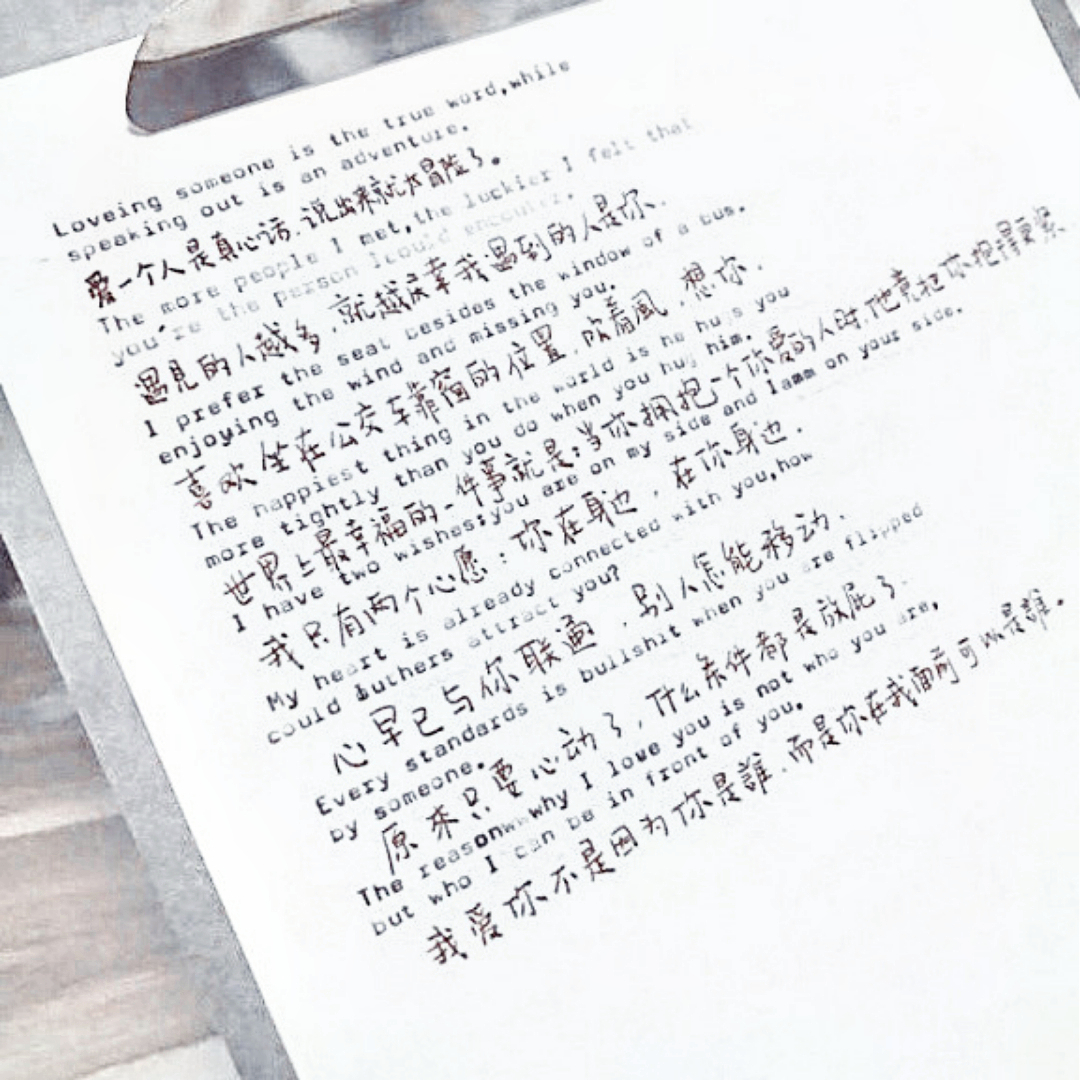 Loveing someone is the true word,while
speaking out is an adventure.
爱一个人是真心话.说出来就大冒险了。
The more people I met,the luckier I felt that
you're the person Icould encouter.
遇見的人越多.就越庆幸我遇到的人是你.
I prefer the seat besides the window of a bus.
enjoying the wind and missing you.
喜欢坐在公交车靠窗的位置.吹着風.想你.
The happiest thing in the world is he hugs you
more tightly than you do when you hug him.
世界上最幸福的一件事就是:当你拥抱一个你爱的人时.他竟把你抱得更紧
I have two wishes:you are on my side and Iamm on your side.
我只有两个心愿:你在身边.在你身边.
My heart is already connected with you,how
could &uthers attract you?
心早已与你联通.别人怎能移动.
Every standards is bullshit when you are flipped
by someone.
原来只要心动了,什么条件都是放屁了.
The reason why I love you is not who you are,
but who I can be in front of you.
我爱你不是因为你是誰.而是你在我面前可以是誰.